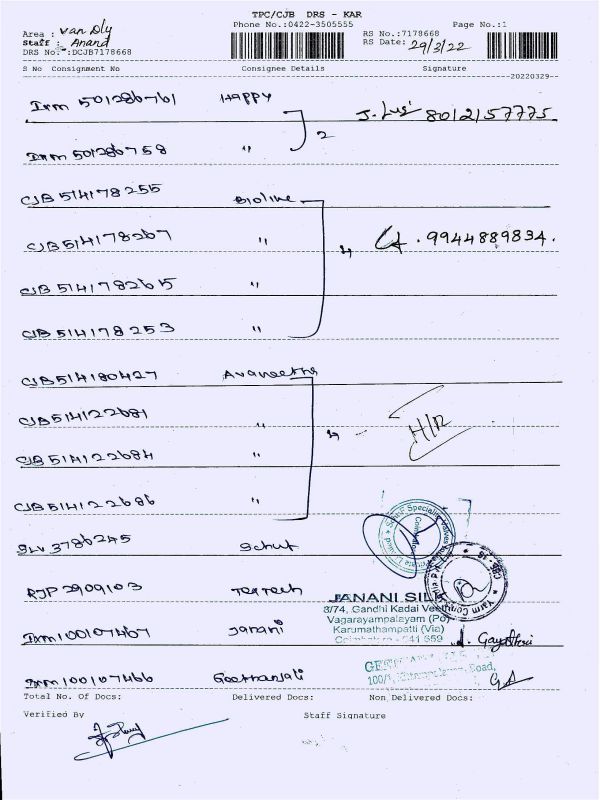 TPC/CJB DRS - KAR
Phone No.:0422-3505555 Page No.:1
Area : Van Dly
Staff : Anand
DRS No.:DCJB7178668
RS No.:7178668
RS Date: 29/3/22
S No Consignment No Consignee Details Signature
20220329
501286761 Happy
8012157775
2
501286758 "
CJB 514178255 Bioline
CJB 514178267 "
4 9944889834.
CJB 514178265 "
CJB 514178253 "
CJB 514180427 Avaneetha
CJB 514122681 "
4 H/R
CJB 514122684 "
CJB 514122686 "
SLV 3786245 Schuf
RJP 2909103 Textech
JANANI SILK
3/74, Gandhi Kadai Veethi
Vagarayampalayam (Po)
Karumathampatti (Via)
Coimbatore - 641 659
100107467 Janani
100107466 Geethanjali
100/1, Road,
Total No. Of Docs: Delivered Docs: Non Delivered Docs:
Verified By Staff Signature